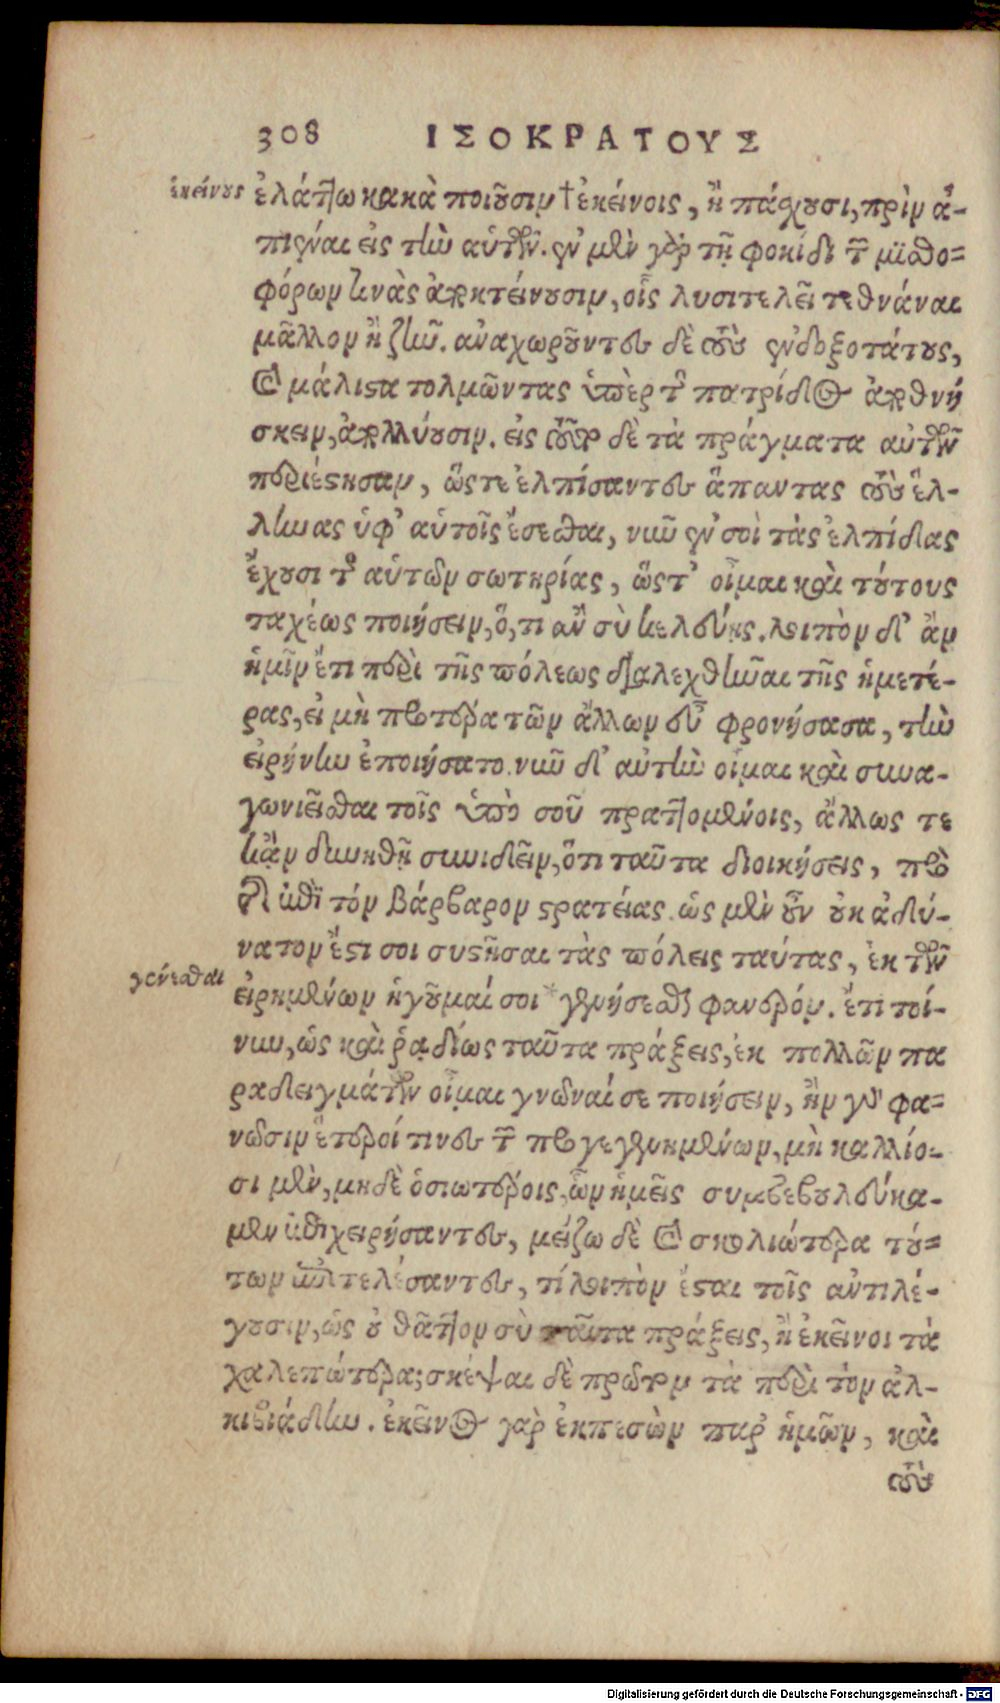 308 ΙΣΟΚΡΑΤΟΥΣ
ἐκείνους
ἐλάττω κακὰ ποιοῦσιν †ἐκείνοις, ἢ πάσχουσι, πρὶν ἀ-
πιέναι εἰς τὴν αὑτῶν. ἐν μὲν γὰρ τῇ φοκίδι τῶν μισθο=
φόρων τινὰς ἀποκτείνουσιν, οἷς λυσιτελεῖ τεθνάναι
μᾶλλον ἢ ζῆν. ἀναχωροῦντες δὲ τοὺς ἐνδοξοτάτους,
καὶ μάλιστα τολμῶντας ὑπὲρ τῆς πατρίδος ἀποθνή
σκειν, ἀπολλύουσιν. εἰς τοῦτο δὲ τὰ πράγματα αὐτῶν
περιέστησαν, ὥστε ἐλπίσαντες ἅπαντας τοὺς ἕλ-
ληνας ὑφ' αὑτοῖς ἔσεσθαι, νῦν ἐν σοὶ τὰς ἐλπίδας
ἔχουσι τῆς αὑτῶν σωτηρίας, ὥστ' οἶμαι καὶ τούτους
ταχέως ποιήσειν, ὅ, τι ἂν σὺ κελεύῃς. λοιπὸν δ' ἂν
ἡμῖν ἔτι περὶ τῆς πόλεως διαλεχθῆναι τῆς ἡμετέ-
ρας, εἰ μὴ προτέρα τῶν ἄλλων εὖ φρονήσασα, τὴν
εἰρήνην ἐποιήσατο. νῦν δ' αὐτὴν οἶμαι καὶ συνα-
γωνιεῖσθαι τοῖς ὑπὸ σοῦ πραττομένοις, ἄλλως τε
κἂν δυνηθῇ συνιδεῖν, ὅτι ταῦτα διοικήσεις, πρὸ
τῆς ἐπὶ τὸν βάρβαρον στρατείας. ὡς μὲν οὖν οὐκ ἀδύ-
νατον ἔστι σοι συστῆσαι τὰς πόλεις ταύτας, ἐκ τῶν
γενέσθαι
εἰρημένων ἡγοῦμαί σοι *γενήσεσθαι φανερόν. ἔτι τοί-
νυν, ὡς καὶ ῥᾳδίως ταῦτα πράξεις, ἐκ πολλῶν πα
ραδειγμάτων οἶμαι γνῶναί σε ποιήσειν, ἢν γὰρ φα=
νῶσιν ἕτεροί τινες τῶν προγεγενημένων, μὴ καλλίο-
σι μὲν, μηδὲ ὁσιωτέροις, ὧν ἡμεῖς συμβεβουλεύκα-
μεν ἐπιχειρήσαντες, μείζω δὲ καὶ δυσκολιώτερα τού=
των ἐπιτελέσαντες, τί λοιπὸν ἔσται τοῖς ἀντιλέ-
γουσιν, ὡς οὐ θᾶττον σὺ ταῦτα πράξεις, ἢ ἐκεῖνοι τὰ
χαλεπώτερα; σκέψαι δὲ πρῶτον τὰ περὶ τὸν ἀλ-
κιβιάδην. ἐκεῖνος γὰρ ἐκπεσὼν παρ' ἡμῶν, καὶ
τοὺς
Digitalisierung gefördert durch die Deutsche Forschungsgemeinschaft - DFG